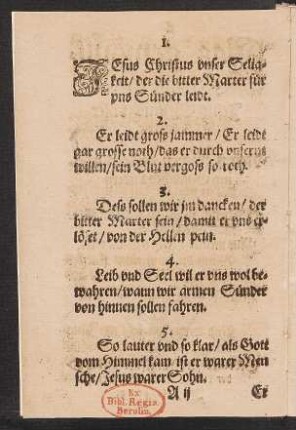 1.
JEsus Christus vnser Selig-
keit / der die bitter Marter für
vns Sünder leidt.
2.
Er leidt gross jammer / Er leidt
gar grosse noth / das er durch vnsern
willen / sein Blut vergoss so roth.
3.
Dess sollen wir jm dancken / der
bitter Marter sein / damit er vns er-
löset / von der Hellen pein.
4.
Leib vnd Seel wil er vns wol be-
wahren / wann wir armen Sünder
von hinnen sollen fahren.
5.
So lauter vnd so klar / als Gott
vom Himmel kam ist er warer Men
sche / Jesus warer Sohn.
A ij Er
Ex
Bibl. Regia
Berolin.